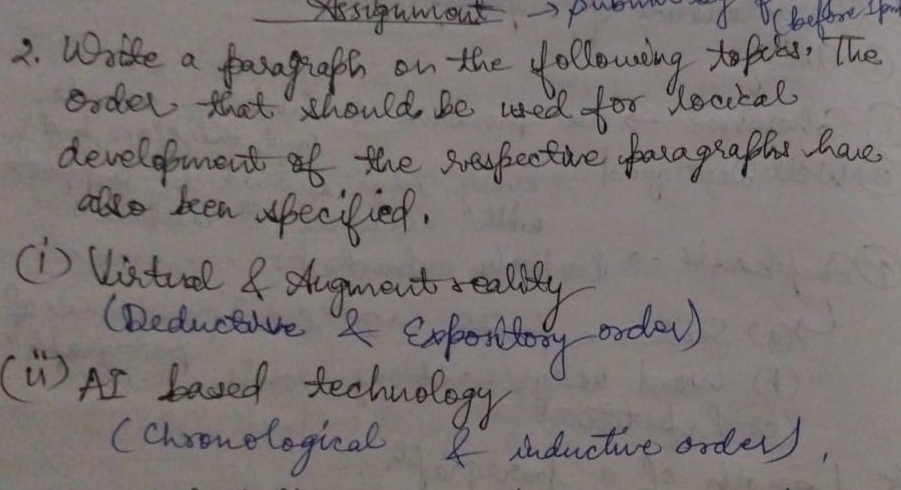 Assignment →
(before 1pm
2. Write a paragraph on the following topics. The
order that should be used for locical
development of the respective paragraphs have
also been specified.
(i) Virtual & Augment reality
(Deductive & Expository order)
(ii) AI based technology
(Chronological & inductive order).